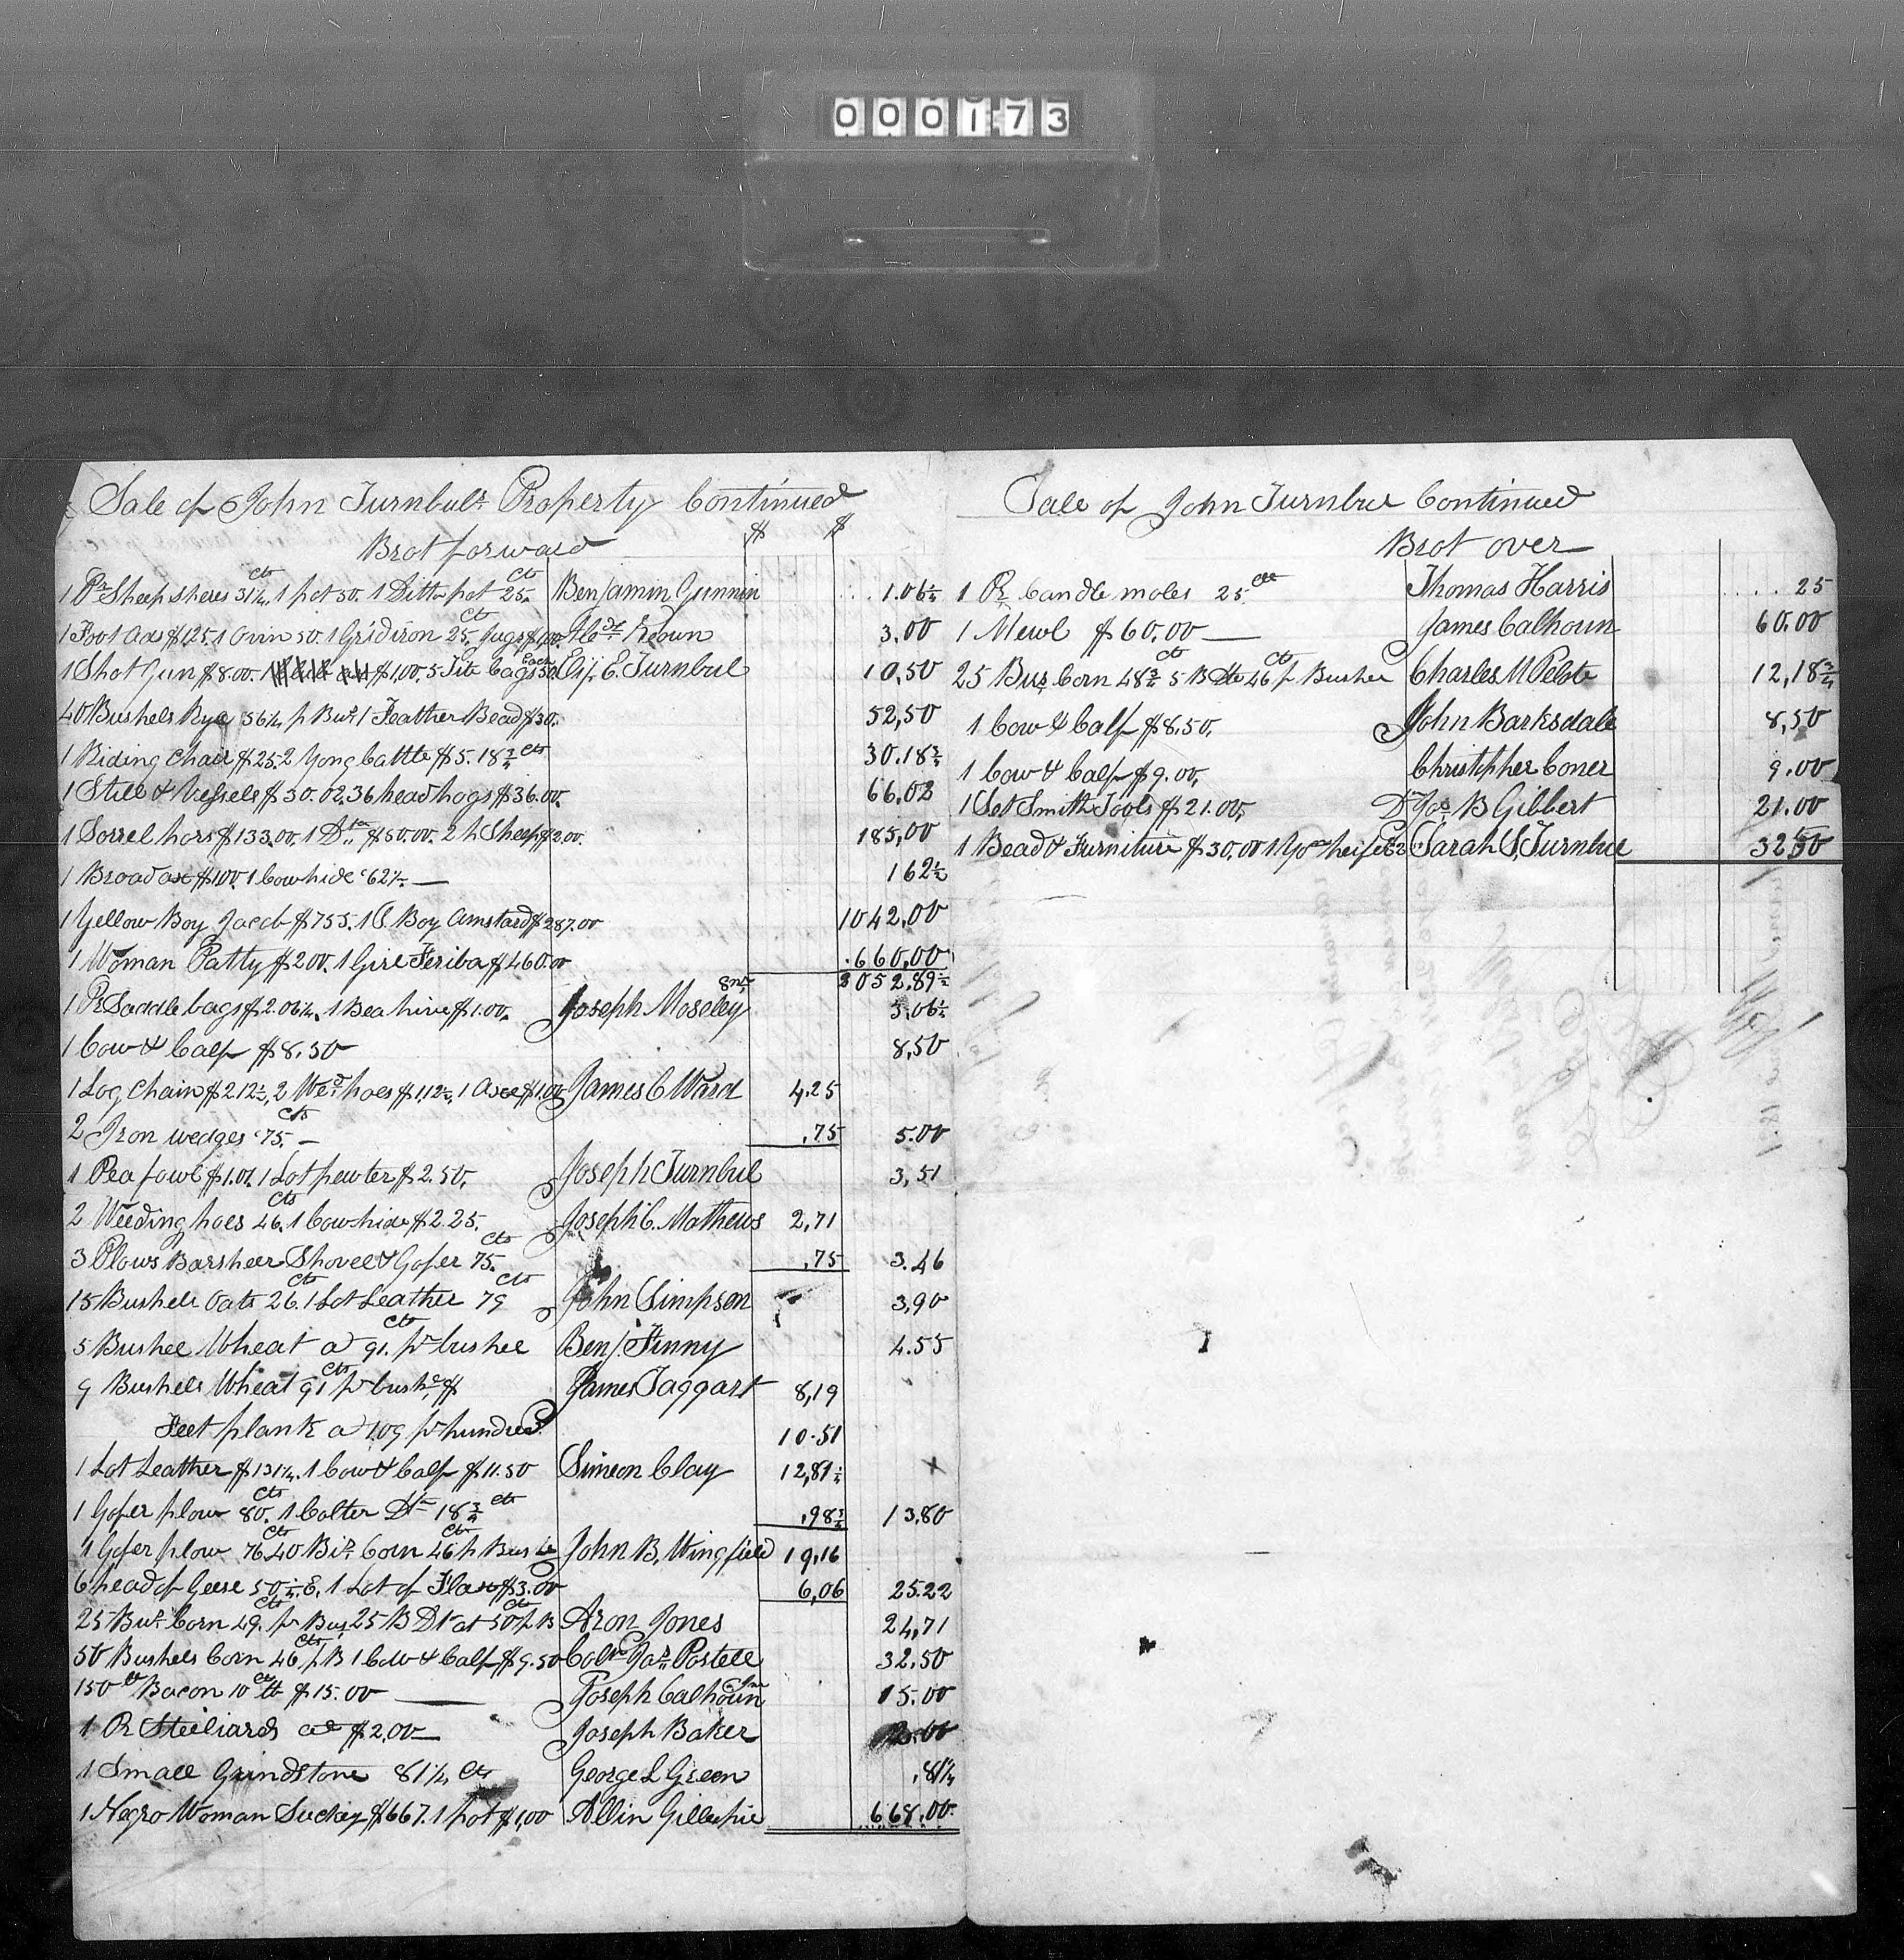 000173
Sale of John Turnbuls Property Continued
$ $
Brot forward
1 Pr Sheep sheres 31¼ cts 1 pot 50. 1 Ditto pot 25 cts Benjamin Gunnin 1.06¼
1 Foot Ads $1.25. 1 Ovin 50. 1 Gridiron 25 cts Jugs $1.00. Keown 3.00
1 Shot Gun $8.00. 1 $1.00, 5 Tite bags 50 Each E. Turnbul 10,50
40 Bushels Rye 56¼ p Bus. 1 Feather Bead $30. 52,50
1 Riding Chair $25. 2 Yong Cattle $5.18¾ cts 30.18¾
1 Still & Vessels $30.02. 36 head hogs $36.00. 66,02
1 Sorrel hors $133.00. 1 Do $50.00. 2 h Sheep $2.00. 185,00
1 Broad axe $1.00. 1 Cowhide 62½ — 1 62½
1 Yellow Boy Jacob $755. 1 B. Boy Amstard $287.00 1042,00
1 Woman Patty $200. 1 Girl Feriba $460.00 660,00
2052.89½
1 Pr Saddle bags $2.06¼. 1 Bea hive $1.00. Joseph Moseley Snr 3,06¼
1 Cow & Calf $8.50 8,50
1 Log Chain $2.12½, 2 Wed hoes $1.12½, 1 Axe $1.00 James C Ward 4,25
2 Iron wedges 75 cts — ,75 5.00
1 Pea fowl $1.01. 1 Lot pewter $2.50. Joseph Turnbul 3,51
2 Weeding hoes 46 cts. 1 Cow-hide $2.25. Joseph C. Mathews 2,71
3 Plows Barsheer Shovel & Gofer 75 cts. ,75 3.46
15 Bushels Oats 26 cts. 1 Lot Leather 79 cts John Simpson 3,90
5 Bushel Wheat a 91 cts. pr bushel Benj. Finny 4.55
9 Bushels Wheat 91 cts pr bushel $ James Taggart 8,19
Feet plank a 1.09 pr hundred 10.51
1 Lot Leather $1.31¼. 1 Cow & Calf $11.50 Simeon Clay 12,81¼ x
1 Gofer plow 80 cts. 1 Colter Do 18¾ cts ,98¾ 13,80
1 Gofer plow 76 cts 40 Bus Corn 46 cts p Bus John B. Wingfield 19,16
6 head of Geese 50 1 Lot of Flax $3.00 6,06 25.22
25 Bus. Corn 49 cts. pr Bus. 25 B Do at 50 cts p B Aron Jones 24,71
50 Bushels Corn 46 cts. p B 1 Cow & Calf $9.50 Coln Jas Postell 32.50
150 lb Bacon 10 cts lb $15.00 — Joseph Calhoun 15.00
1 Pr Steiliards at $2,00 — Joseph Baker 2.00
1 Small Grindstone 81¼ cts George L Green ,81¼
1 Negro Woman Suckey $667. 1 pot $1,00 Allin Gillespie 668.00.
Sale of John Turnbul Continued
Brot over
1 Pr Candle moles 25 cts Thomas Harris 25
1 Mewl $60.00 — James Calhoun 60.00
25 Bus Corn 48¾ cts 5 B Do 46 cts p Bushel Charles M Pelot 12,18¾
1 Cow & Calf $8.50. John Barksdale 8,50
1 Cow & Calf $9.00. Christpher Coner 9.00
1 Set Smith Tools $21.00. Dr Jos B Gibbert 21.00
1 Bead & Furniture $30.00 1 heifer Sarah S. Turnbul 32.50